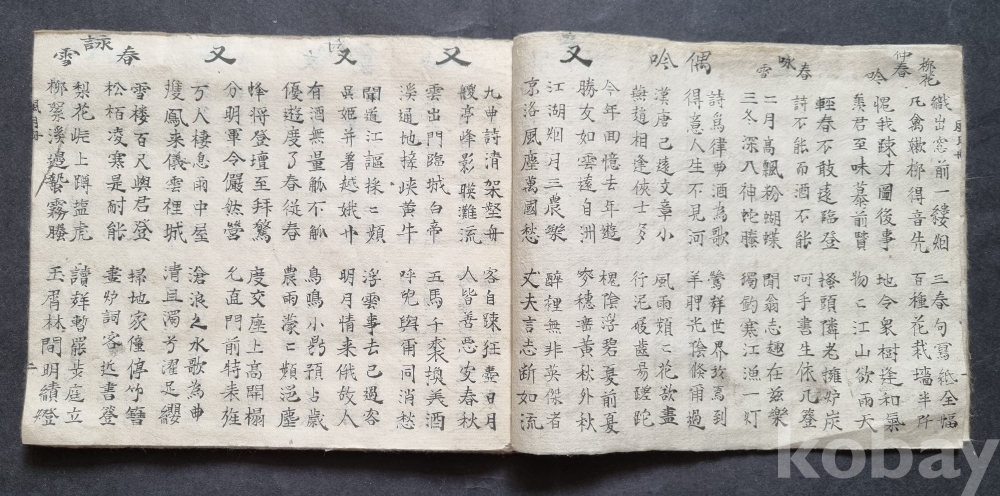 柳花
織出窓前一縷烟 三春句寫紙全幅
凡禽嫩柳得音先 百種花栽墻半所
仲春吟
愧我踈才圖後事 地今泉樹逢和氣
羨君至味慕前賢 物ニ江山欲雨天
春咏雪
輕春不敢遠臨登 搔頭隣老擁炉炭
詩不能而酒不能 呵手書生依几登
二月高飄粉蝴蝶 聞翁志趣在玆樂
三冬深八神蛇藤 獨釣寒江漁一灯
偶吟
詩爲律 酒爲歌 鶯 世界 到
得意人生不見河 羊胛光陰倏爾過
漢唐已遠文章小 風雨頻ニ花欲盡
燕趙相逢俠士多 行泥 齒易蹉跎
又
今年面憶去年遊 槐陰浮碧夏前夏
勝友如雲遠自洲 麥穗垂黃秋外秋
江湖烟月三農樂 醉裡無非英傑者
京洛風塵萬國愁 丈夫言志斷如流
又
九申詩清架壑舟 客自踈狂費日月
亭峰影暎灘流 人皆善惡史春秋
雲出門臨城白帝 五馬千裘換美酒
溪通地搓峽黄牛 呼児與爾同消愁
又
聞道江謳採ニ頻 浮雲事去已過客
吳姬并著越娥巾 明月情来俄故人
有酒無量觚不觚 鳥鳴小 預占歲
優遊度了春従春 農雨濛ニ類浥塵
又
蜂将登壇至拜驚 度交座上高開榻
分明軍令儼然營 允直門前特来旌
万人棲息雨中屋 滄浪之水歌為曲
雙鳳来儀雲裡城 清且濁兮濯足纓
詠春雪
雪楼百尺與君登 掃地家僮停竹
松栢凌寒是耐能 畫炉詞客近書登
梨花岸上蹲塩虎 讀 暫罷步庭立
柳絮溪邉蟄霧螣 玉屑林間明績燈
kobay